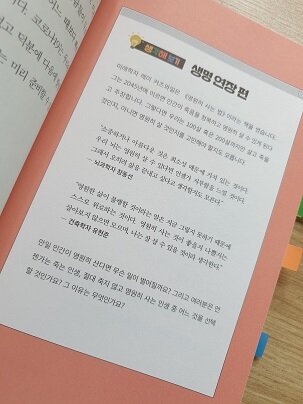 생각해 보기
생명 연장 편
미래학자 레이 커즈와일은 《영원히 사는 법》이라는 책을 썼습니다.
그는 2045년에 이르면 인간이 죽음을 정복하고 영원히 살 수 있게 된다
고 주장합니다. 그렇다면 우리는 100살 혹은 200살까지만 살고 죽을
것인지, 아니면 영원히 살 것인지를 고민해야 할지도 모릅니다.
“소중하거나 아름다운 것은 희소성 때문에 가치 있는 것이다.
우리 뇌는 영원히 살 수 있다면 인생이 지루함을 느낄 것이다.
그래서 오히려 삶을 끝내고 싶다고 생각할지도 모른다.”
– 뇌과학자 장동선
“영원한 삶이 불행한 것이라는 말은 지금 그렇지 못하기 때문에
스스로 위로하는 것이다. 영원히 사는 것이 좋을지 나쁠지는
살아보지 않으면 모르며, 나는 잘 살 수 있을 것이라 생각한다.”
– 건축학자 유현준
만일 인간이 영원히 산다면 무슨 일이 벌어질까요? 그리고 여러분은 언
젠가는 죽는 인생, 절대 죽지 않고 영원히 사는 인생 중 어느 것을 선택
할 것인가요? 그 이유는 무엇인가요?